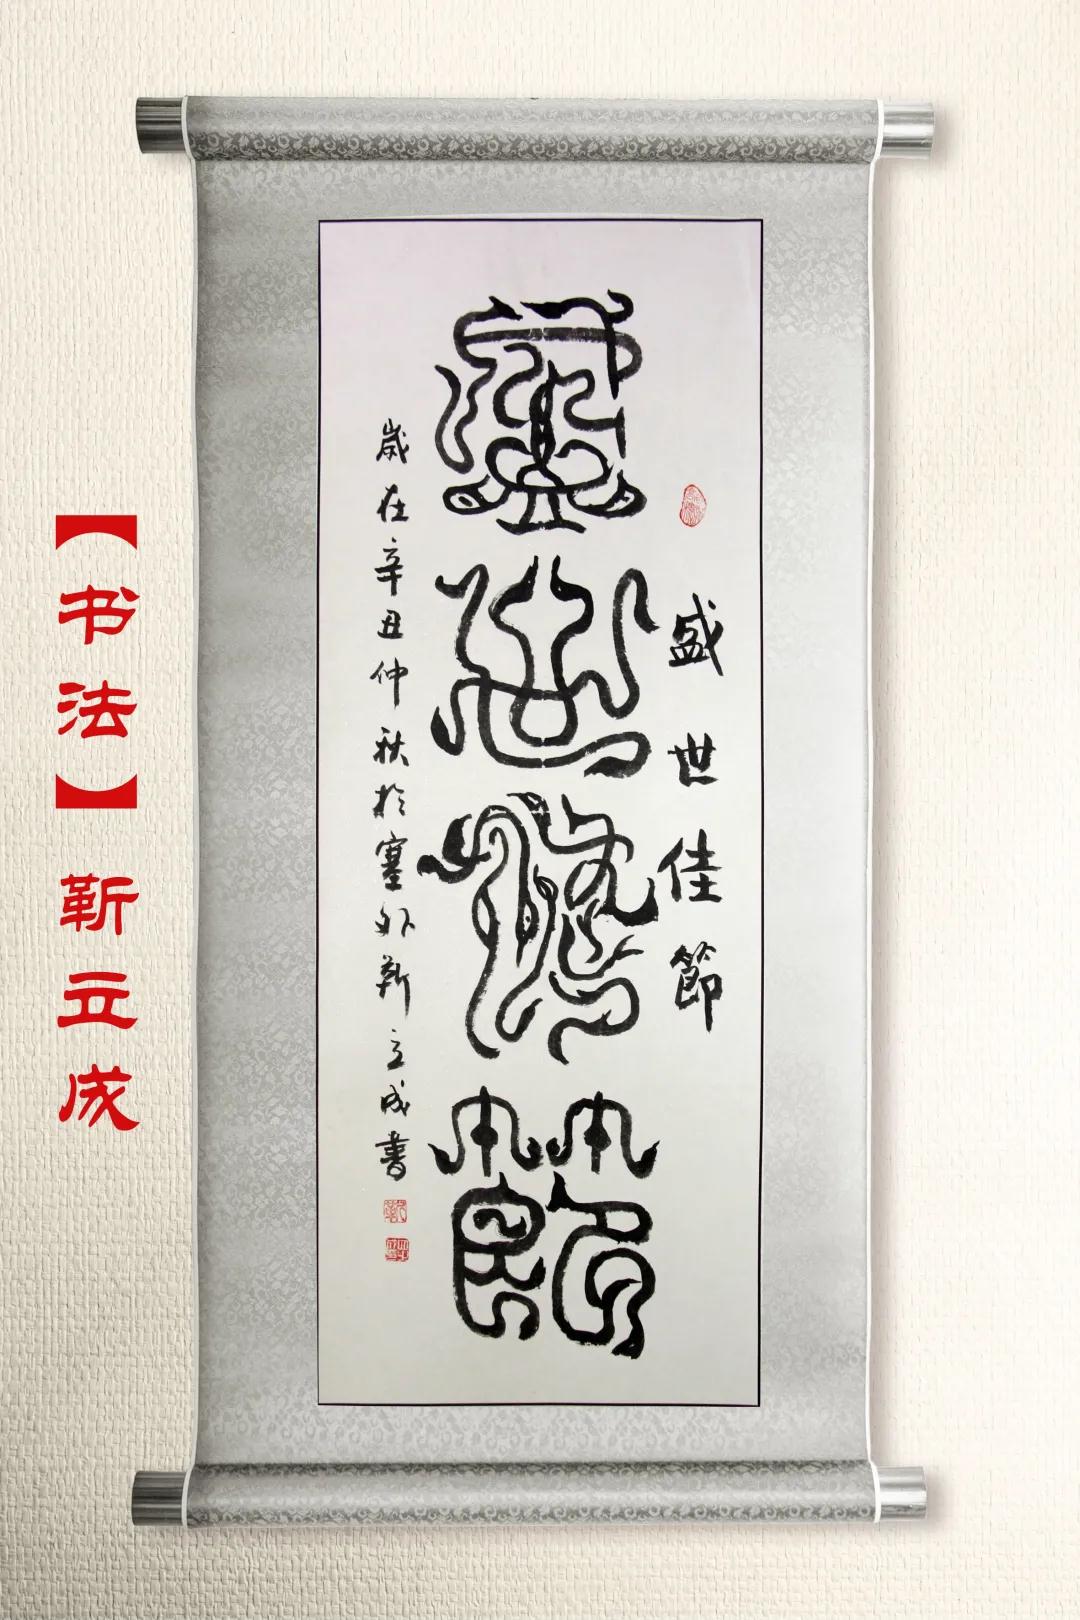 盛世佳節
盛世佳節
歲在辛丑仲秋於塞外靳立成書
【书法】靳立成